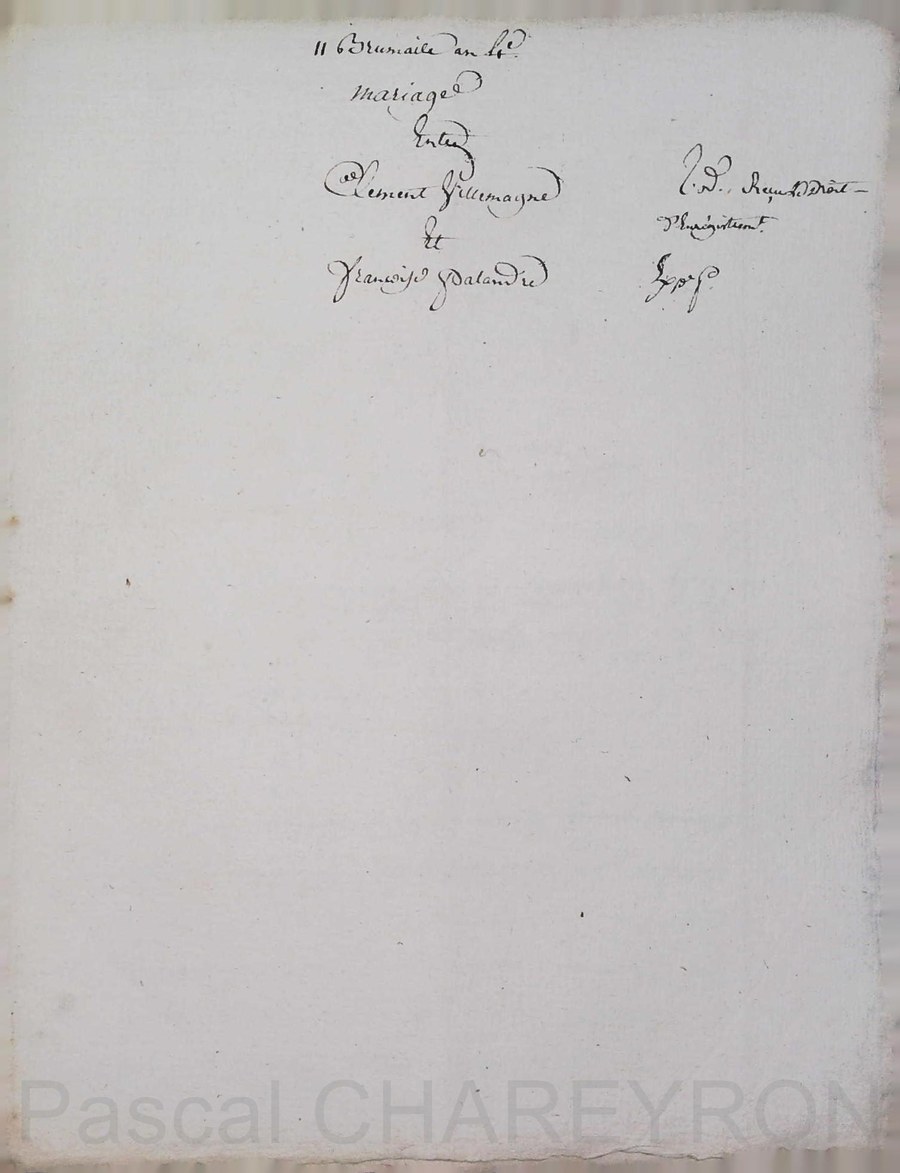 11 Brumaire an
mariage
Entre
Clement Villemagne
Et
françoise palandre
Reçu le Droit
D'Enregistremt.
Pascal CHAREYRON